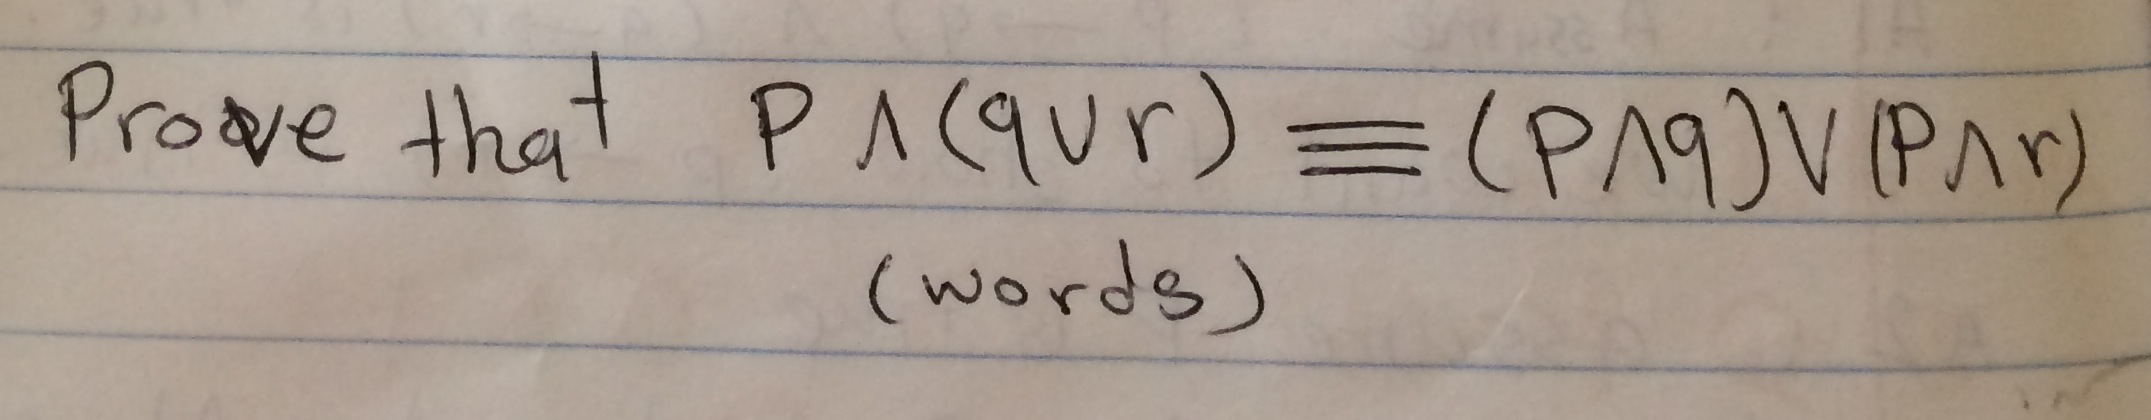 Prove that P ∧ (q ∨ r) ≡ (P ∧ q) ∨ (P ∧ r)
(words)